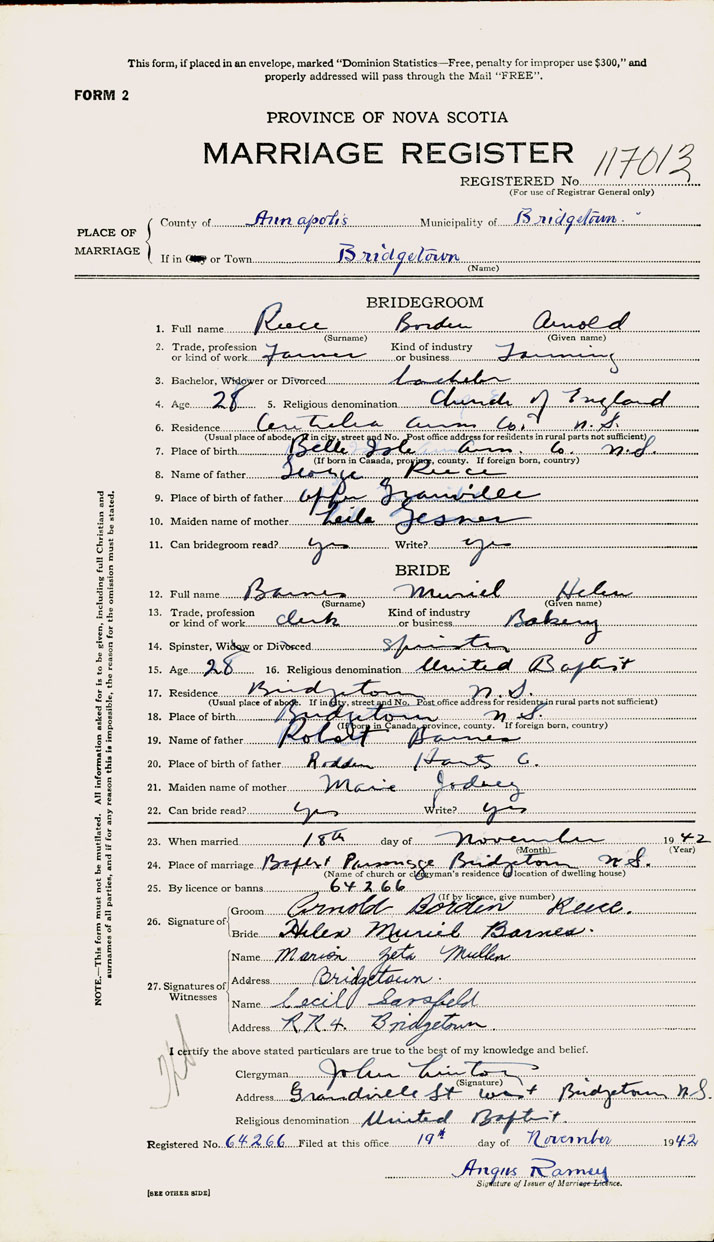 This form, if placed in an envelope, marked "Dominion Statistics—Free, penalty for improper use $300," and
properly addressed will pass through the Mail "FREE".
FORM 2
PROVINCE OF NOVA SCOTIA
MARRIAGE REGISTER
117013
REGISTERED No.
(For use of Registrar General only)
PLACE OF MARRIAGE
County of Annapolis Municipality of Bridgetown
If in City or Town Bridgetown
(Name)
BRIDEGROOM
1. Full name Reece Borden Arnold
(Surname) (Given name)
2. Trade, profession or kind of work Farmer Kind of industry or business Farming
3. Bachelor, Widower or Divorced bachelor
4. Age 28 5. Religious denomination Church of England
6. Residence Centrelea Ann. Co. N.S.
(Usual place of abode. If in city, street and No. Post office address for residents in rural parts not sufficient)
7. Place of birth Belle Isle Ann. Co. N.S.
(If born in Canada, province, county. If foreign born, country)
8. Name of father George Reece
9. Place of birth of father Upper Granville
10. Maiden name of mother Leila Gesner
11. Can bridegroom read? yes Write? yes
BRIDE
12. Full name Barnes Muriel Helen
(Surname) (Given name)
13. Trade, profession or kind of work Clerk Kind of industry or business Bakery
14. Spinster, Widow or Divorced Spinster
15. Age 28 16. Religious denomination United Baptist
17. Residence Bridgetown N.S.
(Usual place of abode. If in city, street and No. Post office address for residents in rural parts not sufficient)
18. Place of birth Bridgetown N.S.
(If born in Canada, province, county. If foreign born, country)
19. Name of father Robert Barnes
20. Place of birth of father Rodden Hants Co.
21. Maiden name of mother Marie
22. Can bride read? yes Write? yes
23. When married 18th day of November 1942
(Month) (Year)
24. Place of marriage Baptist Parsonage Bridgetown N.S.
(Name of church or clergyman's residence or location of dwelling house)
25. By licence or banns 64266
(If by licence, give number)
26. Signature of
Groom Arnold Borden Reece.
Bride Helen Muriel Barnes.
27. Signatures of Witnesses
Name Marion Zeta Mullen
Address Bridgetown.
Name Cecil Sarsfield
Address R.R.4. Bridgetown.
I certify the above stated particulars are true to the best of my knowledge and belief.
Clergyman John Linton
(Signature)
Address Grandville St West Bridgetown N.S.
Religious denomination United Baptist.
Registered No. 64266 Filed at this office 19th day of November 1942
Angus Ramsey
Signature of Issuer of Marriage Licence.
[SEE OTHER SIDE]
NOTE.—This form must not be mutilated. All information asked for is to be given, including full Christian and
surnames of all parties, and if for any reason this is impossible, the reason for the omission must be stated.